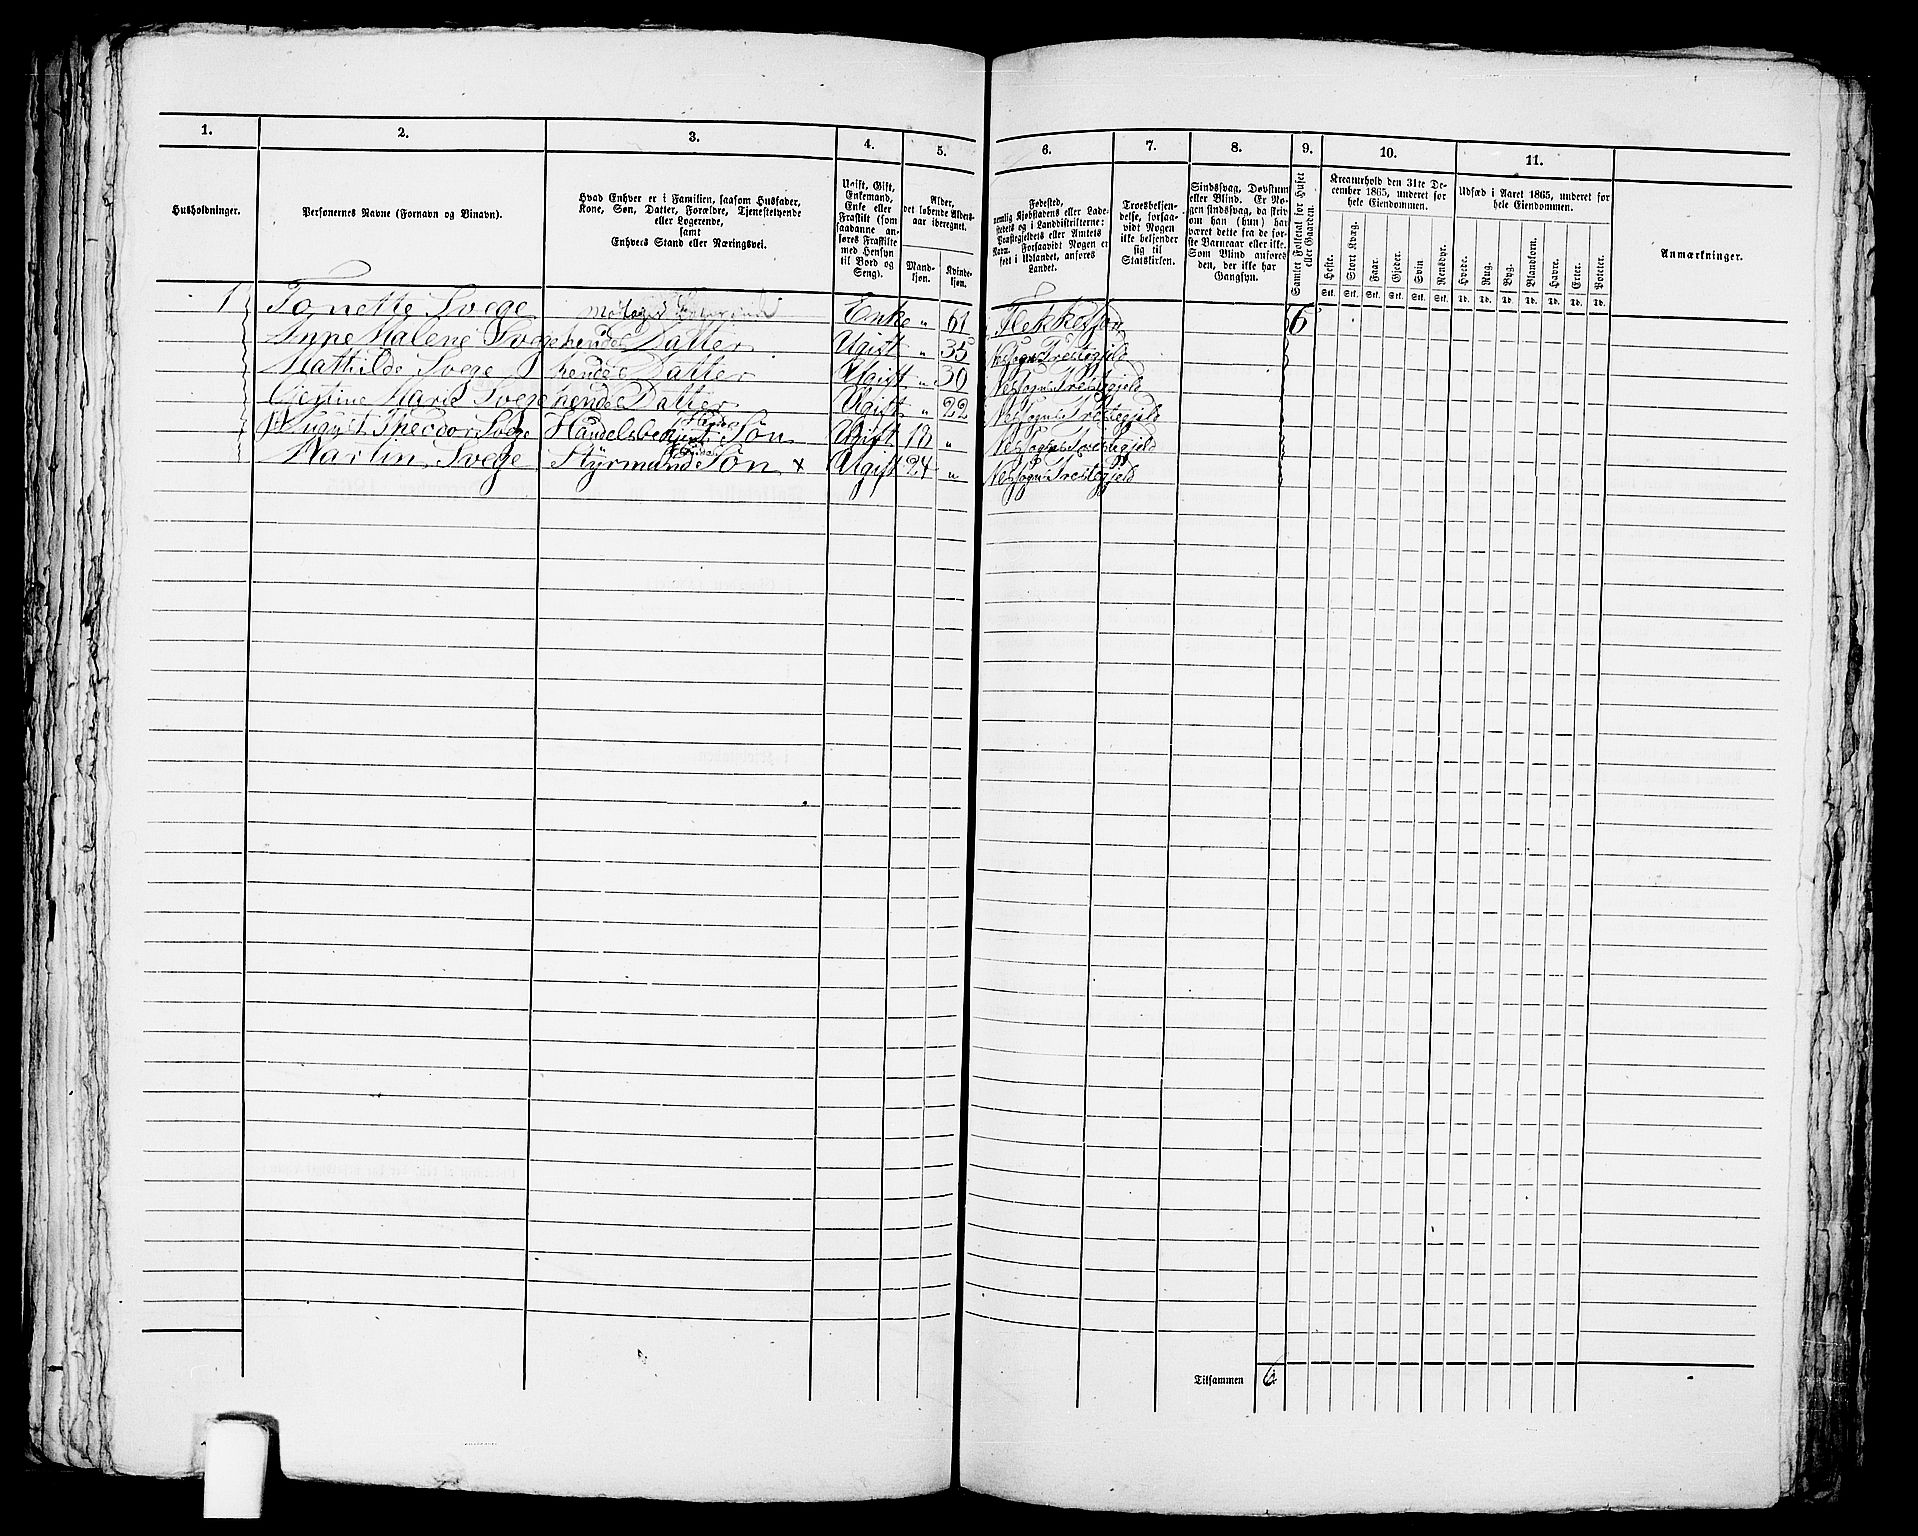 1. 2. 3. 4. 5. 6. 7. 8. 9. 10. 11.
Husholdninger.
Personernes Navne (Fornavn og Binavn).
Hvad Enhver er i Familien, saasom Husfader,
Kone, Søn, Datter, Forældre, Tjenestetyende
eller Logerende,
samt
Enhvers Stand eller Næringsvei.
Ugift, Gift,
Enkemand,
Enke eller
Fraskilt (som
saadanne an-
føres Fraskilte
med Hensyn
til Bord og
Seng).
Alder,
det løbende Alders-
aar iberegnet.
Mand-
kjøn.
Kvinde-
kjøn.
Fødested,
nemlig Kjøbstadens eller Lade-
stedets og i Landdistrikterne:
Præstegjeldets eller Amtets
Navn. Forsaavidt Nogen er
født i Udlandet, anføres
Landet.
Troesbekjen-
delse, forsaa-
vidt Nogen
ikke bekjender
sig til
Statskirken.
Sindssvag, Døvstum
eller Blind. Er No-
gen sindssvag, da skriv
om han (hun) har
været dette fra de før-
ste Barneaar eller ikke.
Som Blind anføres
den, der ikke har
Gangsyn.
Samlet Folketal for Huset
eller Gaarden.
Kreaturhold den 31te De-
cember 1865, underet for
hele Eiendommen.
Heste. Stort Kvæg. Faar. Gjeder. Svin. Rensdyr.
Stk. Stk. Stk. Stk. Stk. Stk.
Udsæd i Aaret 1865, underet for
hele Eiendommen.
Hvede. Rug. Byg. Blandkorn. Havre. Erter. Poteter.
Td. Td. Td. Td. Td. Td. Td.
Anmærkninger.
1 Tonette Svege Enke „ 61 Flekkefjord 6
Anne Malene Svege hendes Datter Ugift „ 35 Nessogns Prestegjeld
Mathilde Svege hendes Datter Ugift „ 30 Nessogns Prestegjeld
Gjertine Marie Svege hendes Datter Ugift „ 22 Nessogns Prestegjeld
August Theodor Svege Handelsbetjent Hendes Søn Ugift 18 „ Nessogns Prestegjeld
Martin Svege Styrmand Hendes Søn x Ugift 24 „ Nessogns Prestegjeld
Tilsammen 6